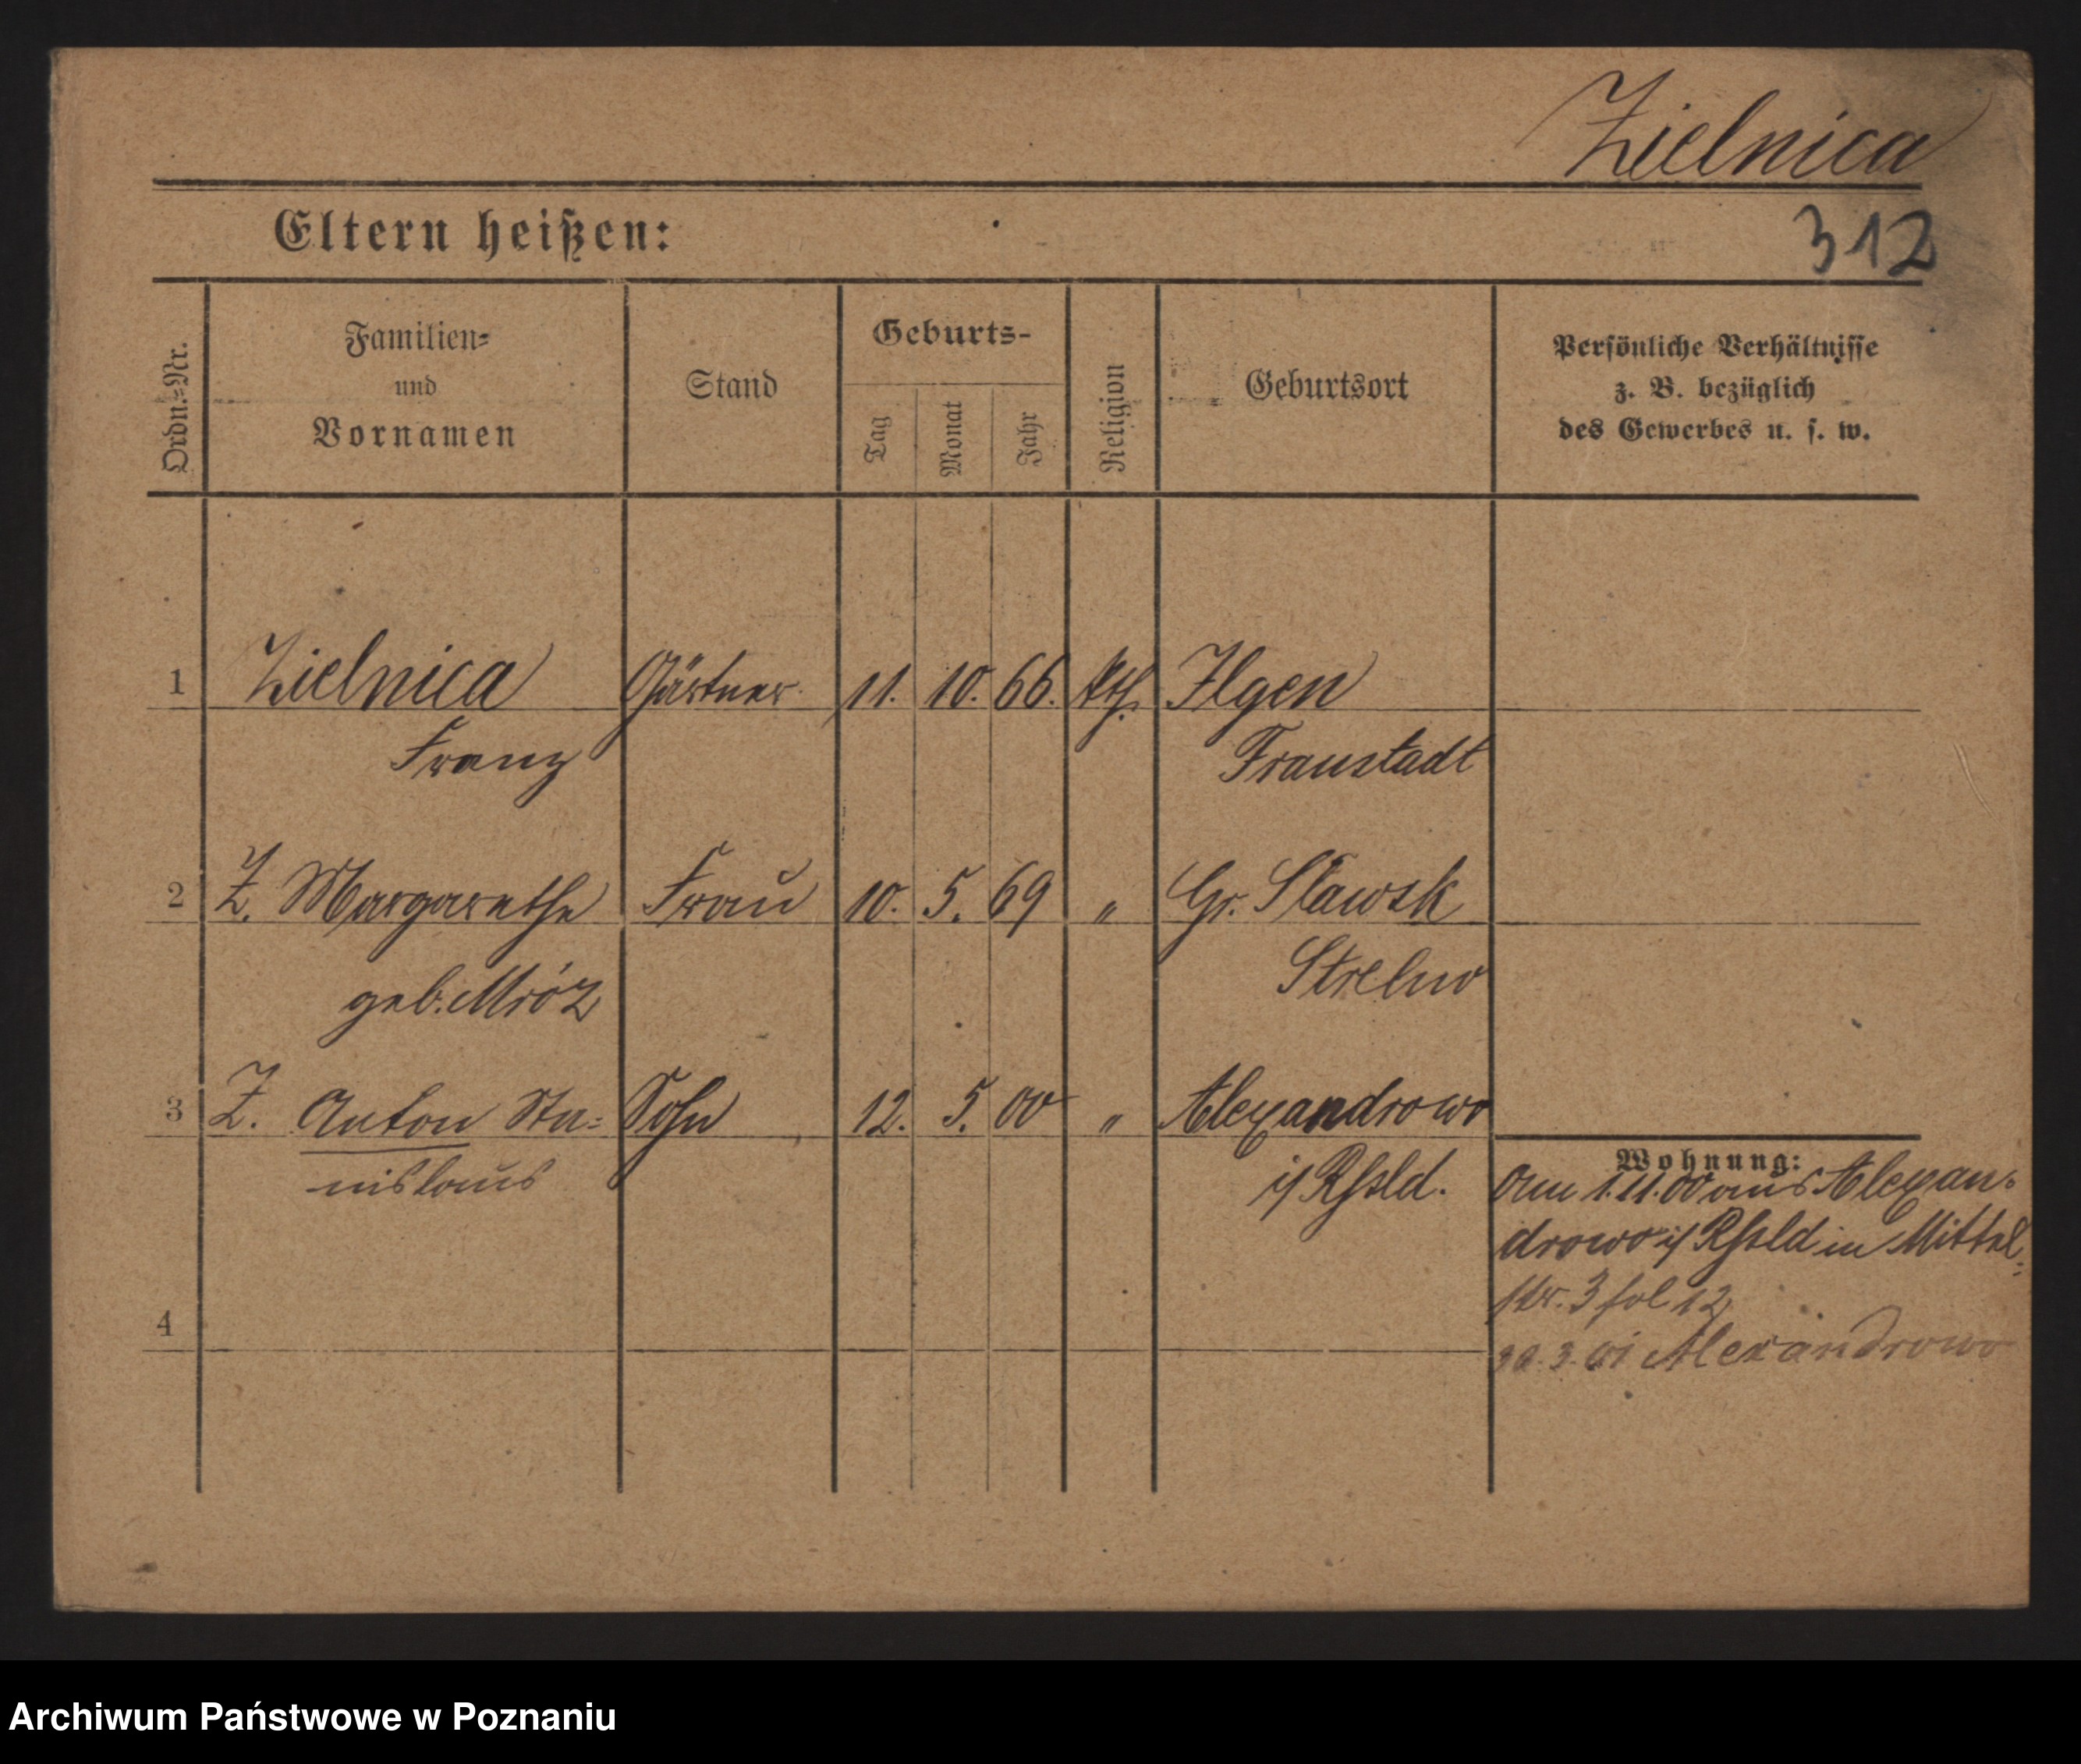 Zielnica
Eltern heißen:
312
Ordn.-Nr.
Familien-
und
Vornamen
Stand
Geburts-
Tag
Monat
Jahr
Religion
Geburtsort
Persönliche Verhältnisse
z. B. bezüglich
des Gewerbes u. s. w.
1 Zielnica Gärtner 11. 10. 66. kth. Ilgen
Franz Fraustadt
2 Z. Margarethe Frau 10. 5. 69 " Gr. Sławsk
geb. Mróz Strelno
3 Z. Anton Sta- Sohn 12. 5. 00 " Alexandrowo
nislaus Rssld.
Wohnung:
1.11.00 aus Alexan-
drowo Rssld in Mittel-
str. 3 fol 12
4
30.3.01 Alexandrowo
Archiwum Państwowe w Poznaniu